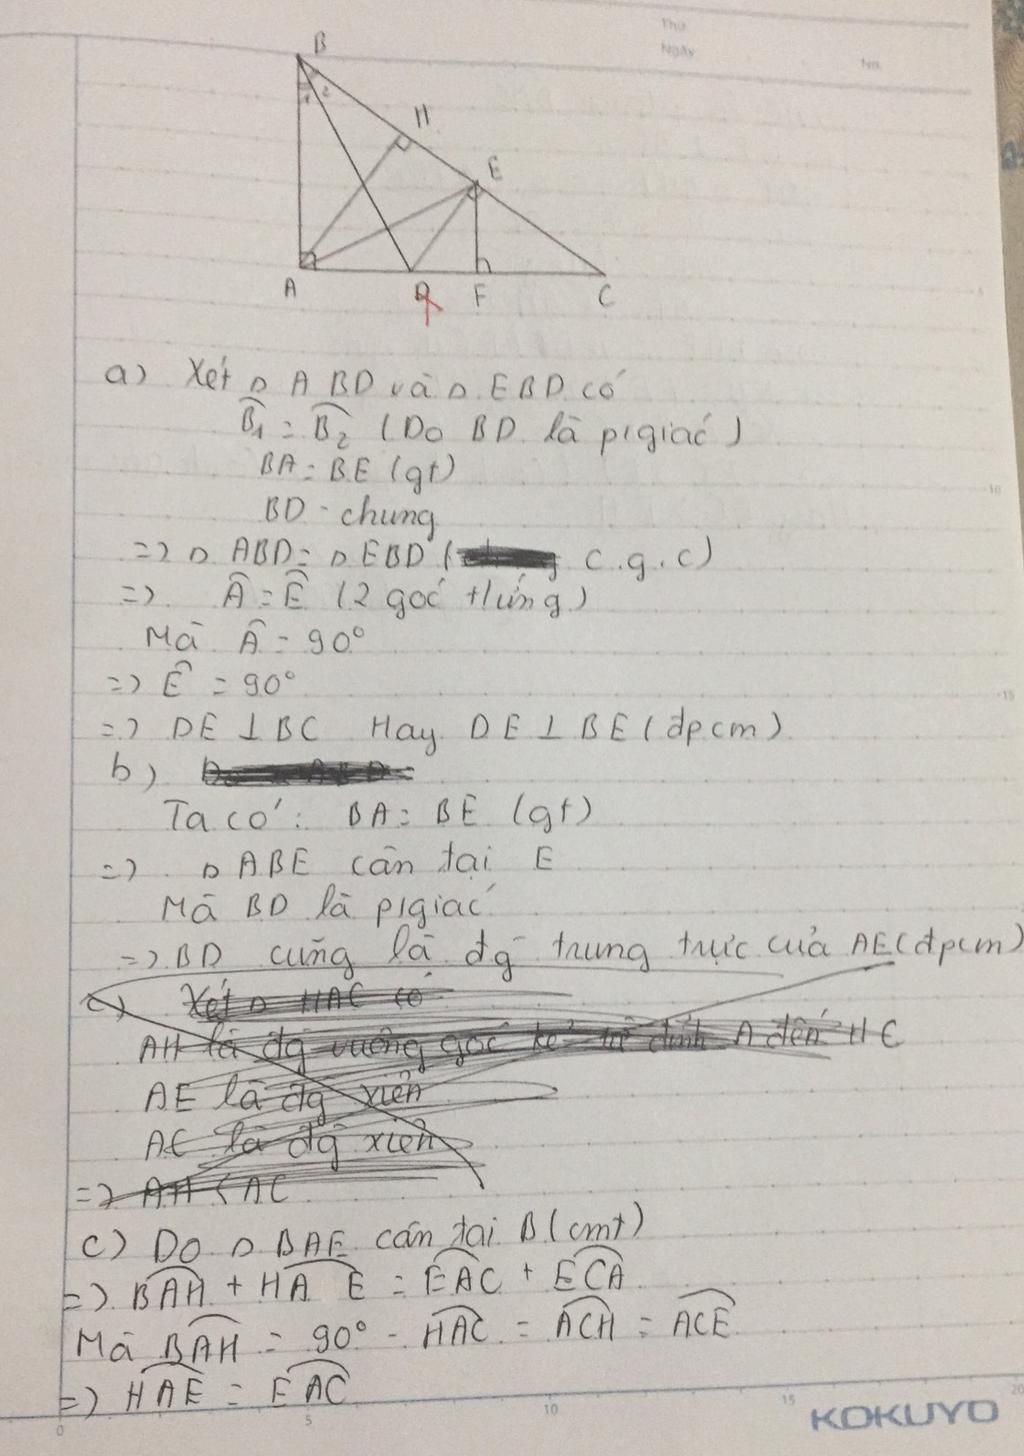 Thứ
Ngày
No.
B
1 2
H
E
A D F C
a) Xét Δ ABD và Δ EBD có
B̂1 = B̂2 (Do BD là p/giác)
BA = BE (gt)
BD - chung
=> Δ ABD = Δ EBD ( c.g.c)
=> Â = Ê (2 góc t/ứng)
Mà Â = 90°
=> Ê = 90°
=> DE ⊥ BC Hay DE ⊥ BE (đpcm)
b)
Ta có: BA = BE (gt)
=> Δ ABE cân tại E
Mà BD là p/giác
=> BD cũng là đg trung trực của AE (đpcm)
c) Xét Δ HAC có
AH là đg vuông góc kẻ từ đỉnh A đến HC
AE là đg xiên
AC là đg xiên
=> AH < AC
c) Do Δ BAE cân tại B (cmt)
=> BAH + HAE = EAC + ECA
Mà BAH = 90° - HAC = ACH = ACE
=> HAE = EAC
0 5 10 15 20
10
15
KOKUYO